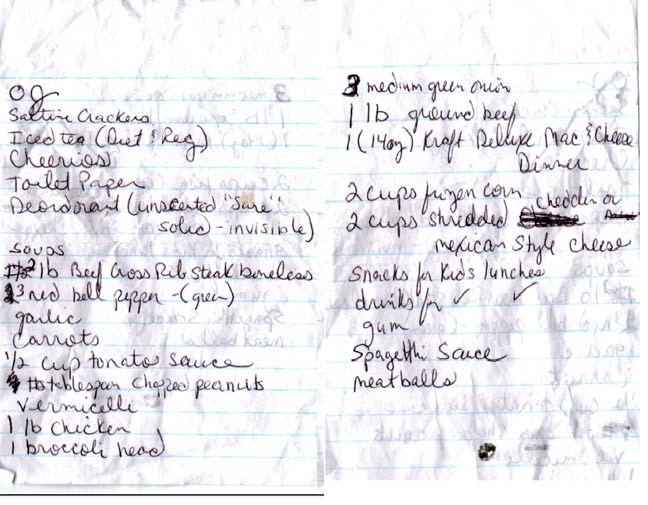 OJ
Saltine Crackers
Iced tea (Diet & Reg)
Cheerios
Toilet Paper
Deordorant (unscented "Sure"
solid - invisible)
soups
1lb Beef Cross Rib Steak boneless
3 red bell pepper - (green)
garlic
Carrots
1/2 cup tomatos sauce
tablespan chopped peanuts
Vermicelli
1 lb chicken
1 broccoli head
3 medium green onion
1 lb ground beef
1 (14oz) Kraft Deluxe Mac & Cheese
Dinner
2 cups frozen corn
2 cups shredded cheddar or
mexican style cheese
Snacks for Kids lunches
drinks for ✓ ✓
gum
Spagetthi Sauce
meatballs